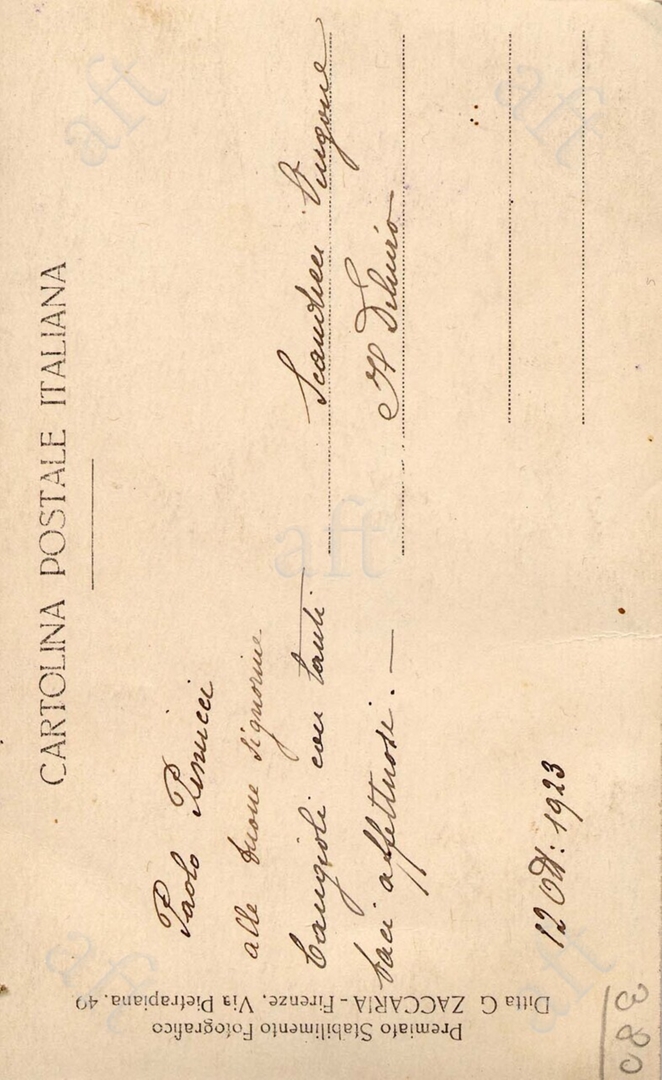 CARTOLINA POSTALE ITALIANA
Paolo Renucci
alle buone signorine
Cangioli con tanti
baci affettuosi. —
12 Ott: 1923
Scandicci Vingone
Il Deluvio
Premiato Stabilimento Fotografico
Ditta G. ZACCARIA - Firenze, Via Pietrapiana. 49
380
aft
aft
aft
aft
aft